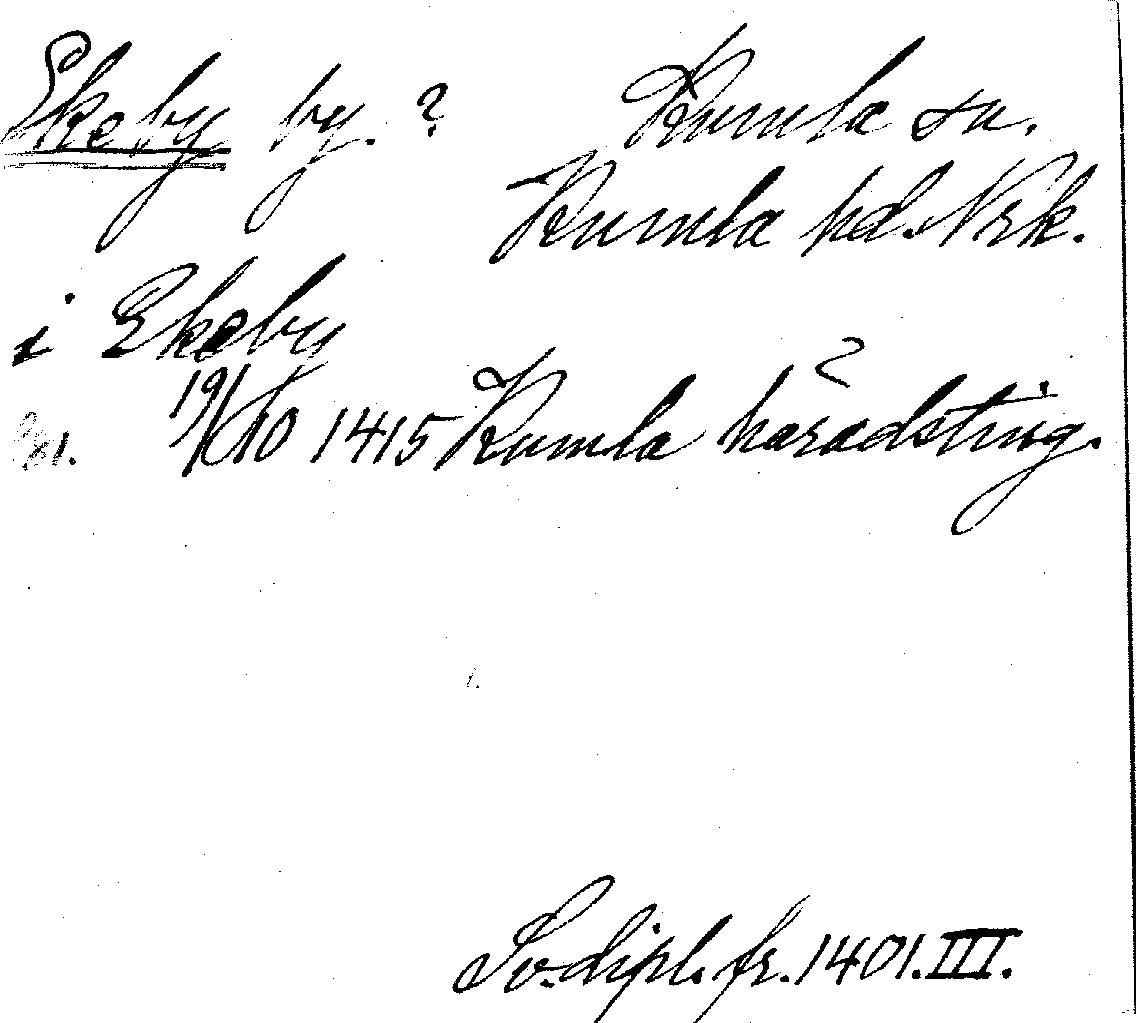 Ekeby by. ? Kumla sn.
Kumla hd. Nrk.
i Ekeby
19/10 1415 Kumla häradsting.
Sv. dipl. fr. 1401. III.